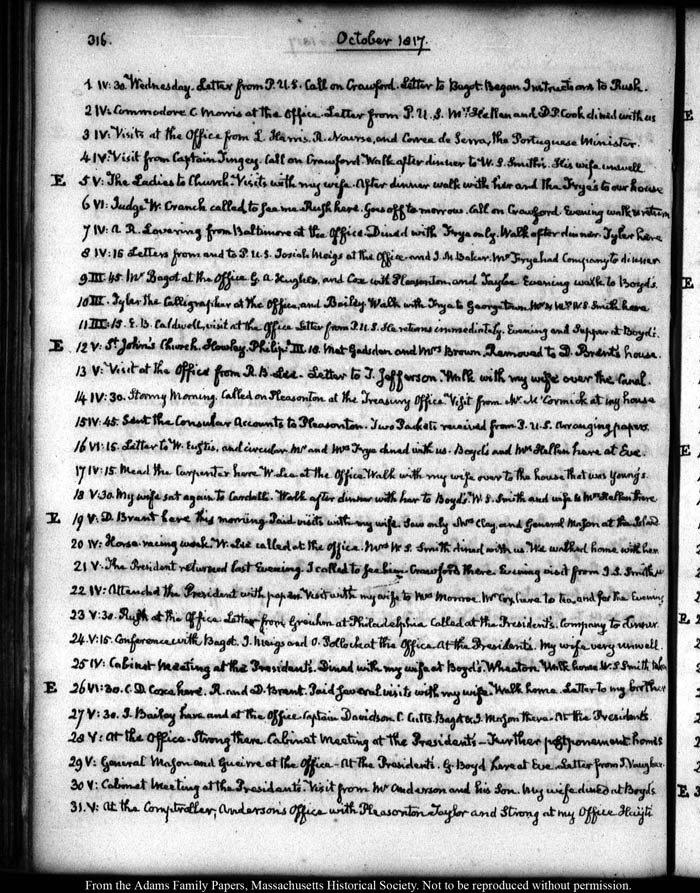 316.
October 1817.
1 IV:30. Wednesday. Letter from P.U.S. Call on Crawford. Letter to Bagot. Began Instructions to Rush.
2 IV: Commodore C Morris at the Office. Letter from P.U.S. Mrs Hellen and D P Cook dined with us
3 IV: Visits at the Office from L. Harris. R. Nourse, and Correa de Serra, the Portuguese Minister.
4 IV: Visit from Captain Tingey. Call on Crawford. Walk after dinner to W. S. Smith's. His wife unwell
E 5 V: The Ladies to Church. Visits with my wife. After dinner walk with her and the Frye's to our house
6 VI: Judge W. Cranch called to see me. Rush here. Goes off tomorrow. Call on Crawford. Evening walk return
7 IV: A. R. Levering from Baltimore at the Office. Dined with Frye only. Walk after dinner. Tyler here
8 IV:15 Letters from and to P.U.S. Josiah Meigs at the Office and J. M Baker. Mr Frye had Company to dinner
9 III.45. Mr Bagot at the Office G. A Hughes, and Cox with Pleasonton, and Tayloe Evening walk to Boyd's.
10 III. Tyler the Calligrapher at the Office, and Bailey Walk with Frye to Georgetown. Mr & Mrs W S Smith here
11 III:15. E. B. Caldwell, visit at the Office Letter from P.U.S. He returns immediately. Evening and Supper at Boyd's.
E 12 V: St John's Church. Hawley. Philip. III 18. Met Gadsden and Mrs Brown. Removed to D. Brent's house.
13 V: Visit at the Office from R. B. Lee. Letter to T. Jefferson. Walk with my wife over the Canal.
14 IV:30. Stormy Morning. Called on Pleasonton at the Treasury Office. Visit from Mr. McCormick at my house
15 IV:45. Sent the Consular Accounts to Pleasonton. Two Packets received from P.U.S. Arranging papers.
16 VI:15. Letter to W. Eustis, and circular Mr and Mrs Frye dined with us. Boyd's and Mrs Hellen here at Eve.
17 IV:15. Mead the Carpenter here W. Lee at the Office Walk with my wife over to the house that was Young's.
18 V.30. My wife sat again to Cardelli. Walk after dinner with her to Boyd's. W. S. Smith and wife & Mrs Hellen there
E 19 V. D. Brent here this morning. Paid visits with my wife. Saw only Mrs Clay, and General Mason at the Island
20 IV: Horse-racing week. W. Lee called at the Office. Mrs W. S. Smith dined with us. We walked home with her
21 V. The President returned last Evening. I called to see him. Crawford there. Evening visit from J. S. Smith
22 IV: Attended the President with papers. Visit with my wife to Mrs Monroe. Mr Cox here to tea, and for the Evening
23 V:30. Rush at the Office. Letter from Greuhm at Philadelphia Called at the President's. Company to Dinner.
24. V:15. Conference with Bagot. J. Meigs and O. Pollock at the Office. At the President's. My wife very unwell.
25 IV: Cabinet Meeting at the President's. Dined with my wife at Boyd's. Wheaton. Walk home W. S Smith
E 26 VI:30. C. D. Coxe here. R. and D. Brent. Paid several visits with my wife. Walk home. Letter to my brother
27 V:30. J. Bailey here and at the Office Captain Davidson C. Cutts Bagot & J. Mason there. At the President's
28 V: At the Office. Strong there. Cabinet Meeting at the President's — Further postponement
29 V: General Mason and Gueirre at the Office. At the President's. G. Boyd here at Eve. Letter from J. Vaughan.
30 V: Cabinet Meeting at the President's. Visit from Mr Anderson and his Son. My wife dined at Boyd's
31. V: At the Comptroller, Anderson's Office with Pleasonton. Taylor and Strong at my Office Hayti
From the Adams Family Papers, Massachusetts Historical Society. Not to be reproduced without permission.